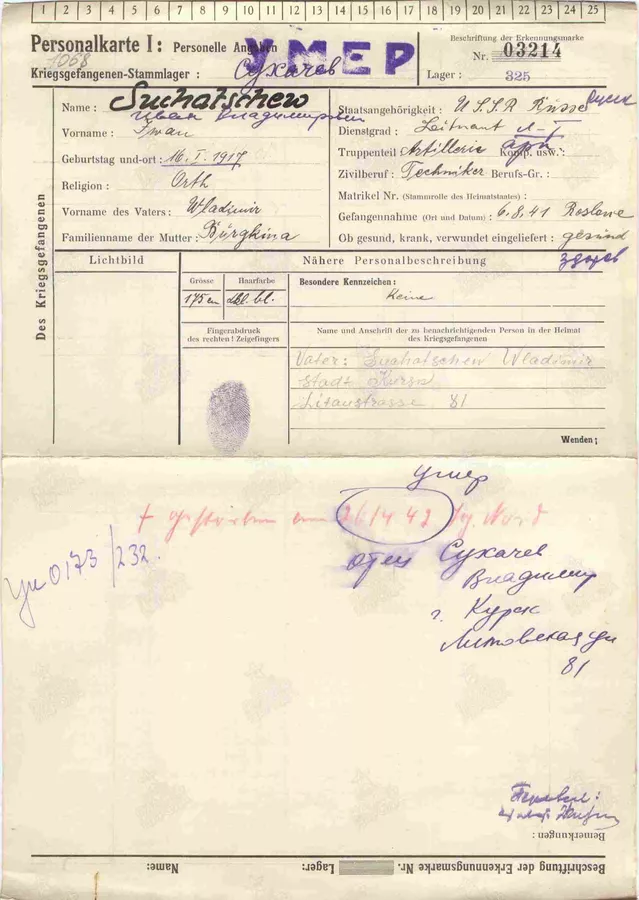 1 2 3 4 5 6 7 8 9 10 11 12 13 14 15 16 17 18 19 20 21 22 23 24 25
Personalkarte I: Personelle Angaben
УМЕР
Beschriftung der Erkennungsmarke
1068
Nr. 03214
Kriegsgefangenen-Stammlager :
Сухачев
Lager : 325
Des Kriegsgefangenen
Name : Suchatschew
Иван Владимирович
Vorname : Iwan
Geburtstag und -ort : 16. I. 1917
Religion : Orth
Vorname des Vaters : Wladimir
Familienname der Mutter : Bürgkina
Staatsangehörigkeit : USSR Russe
Dienstgrad : Leitnant л-т
Truppenteil : Artillerie Komp. usw.: арт
Zivilberuf : Techniker Berufs-Gr. :
Matrikel Nr. (Stammrolle des Heimatstaates) :
Gefangennahme (Ort und Datum) : 6.8.41 Roslowe
Ob gesund, krank, verwundet eingeliefert : gesund
здоров
Lichtbild
Nähere Personalbeschreibung
Grösse
Haarfarbe
175 cm
bl.
Besondere Kennzeichen:
Keine
Fingerabdruck
des rechten ! Zeigefingers
Name und Anschrift der zu benachrichtigenden Person in der Heimat
des Kriegsgefangenen
Vater: Suchatschew Wladimir
Stadt Kursk
Litaustrasse 81
Wenden;
умер
+ gestorben am 26/4 42 Nord
0173/232.
отец Сухачев
Владимир
г. Курск
Литовская ул
81
Перевел:
Bemerkungen :
Beschriftung der Erkennungsmarke Nr.
Lager:
Name: